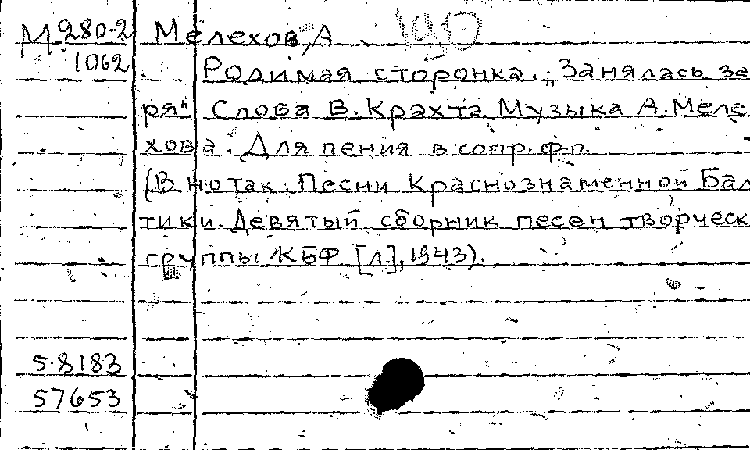 М 280-2 Мелехов, А
1062 Родимая сторонка. „Занялась за
ря" Слова В. Крахта Музыка А. Меле
хова. Для пения в сопр. ф-п.
(В нотах: Песни Краснознаменной Бал
тики. Девятый сборник песен творческ
группы КБФ [Л], 1943).
5.8183
57653